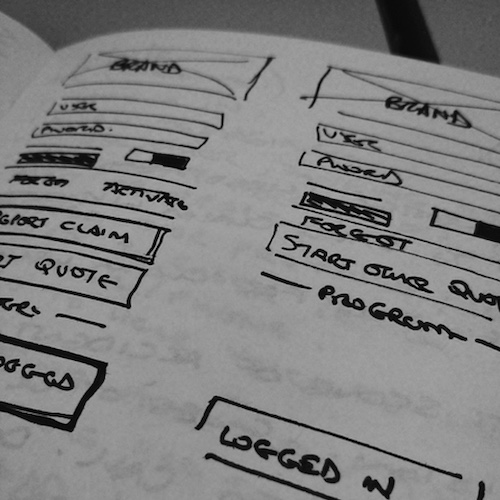 BRAND
USER
PWORD.
FORGOT ACTIVATE
REPORT CLAIM
QUOTE
LOGGED
BRAND
USER
PWORD
FORGOT
START OTHER QUO
LOGGED IN